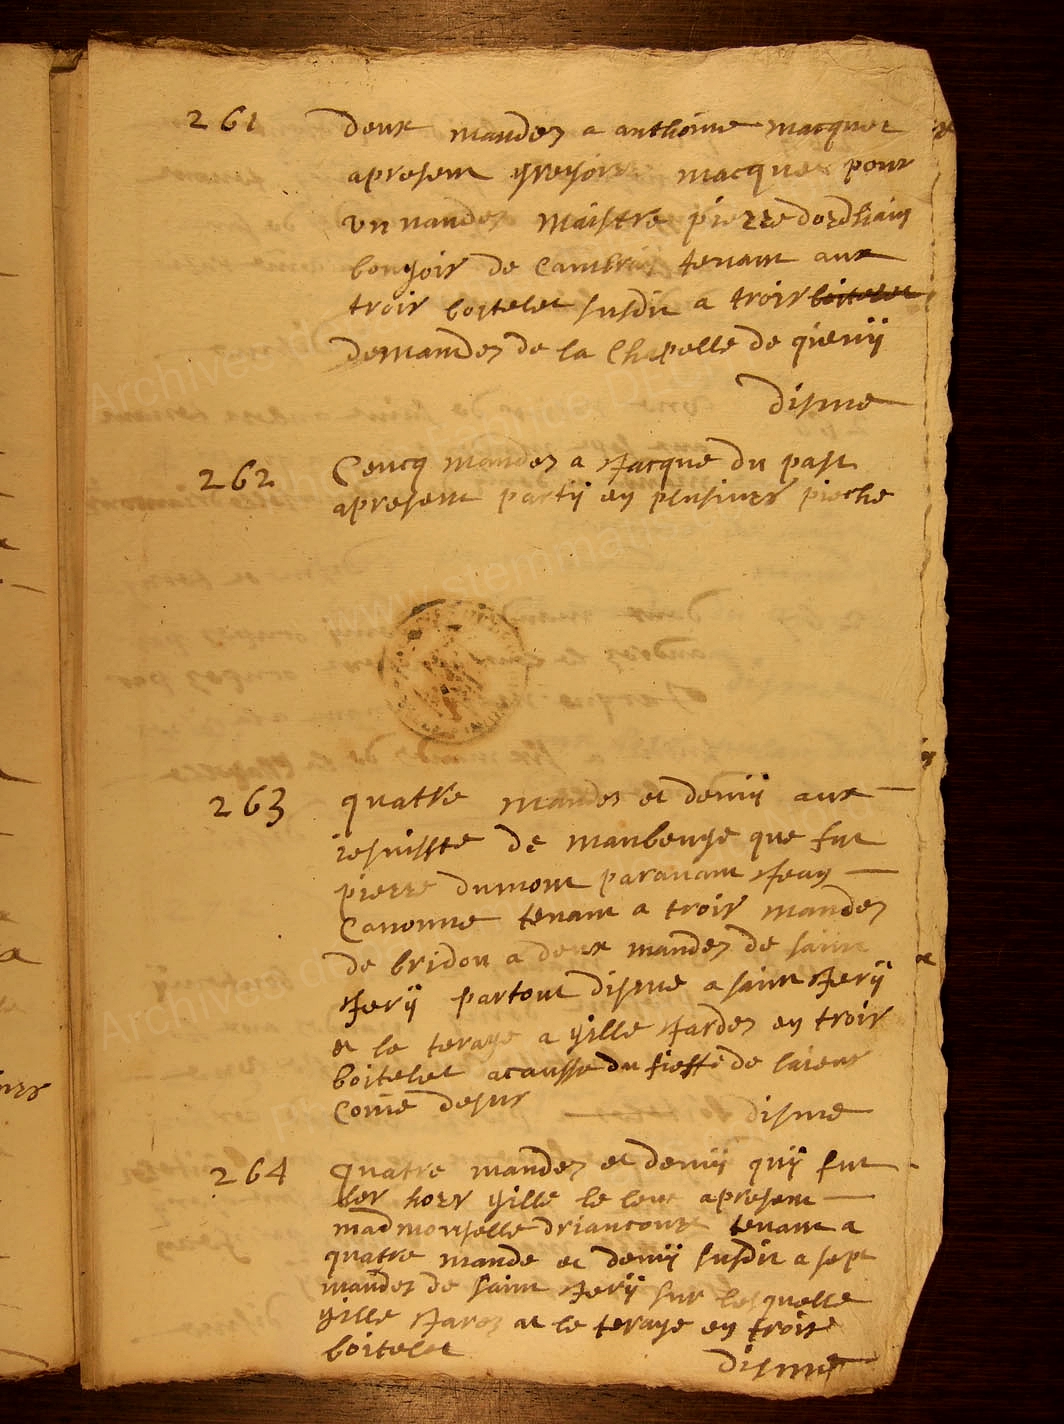 261 deux mandez a anthoine macquet
apresent gregoire macquet pour
un mandez maistre pierre dordhain
bougois de Cambray tenant aux
trois boitelet susdit a trois boitelet
demandez de la Chapelle de quievij
disme
262 Cencq mandez a Jacque du past
apresent partij en plusiurs pieche
263 quatre mandez et demij aux
jesuisste de maubeuge que fut
pierre dumont paravant Jean
Canonne tenant a trois mandez
de bridou a deux mandez de saint
Jerij partout disme a saint Jerij
et le terage a gille Jardez en trois
boitelet acausse du fieffe de
Come desus disme
264 quatre mandez et demij quij fut
les hoer gille le leuc apresent
madmoiselle driancourt tenant a
quatre mande et demij susdit a sept
mandez de saint Jerij sur lesquelle
gille Jarez at le terage en trois
boitelet
disme